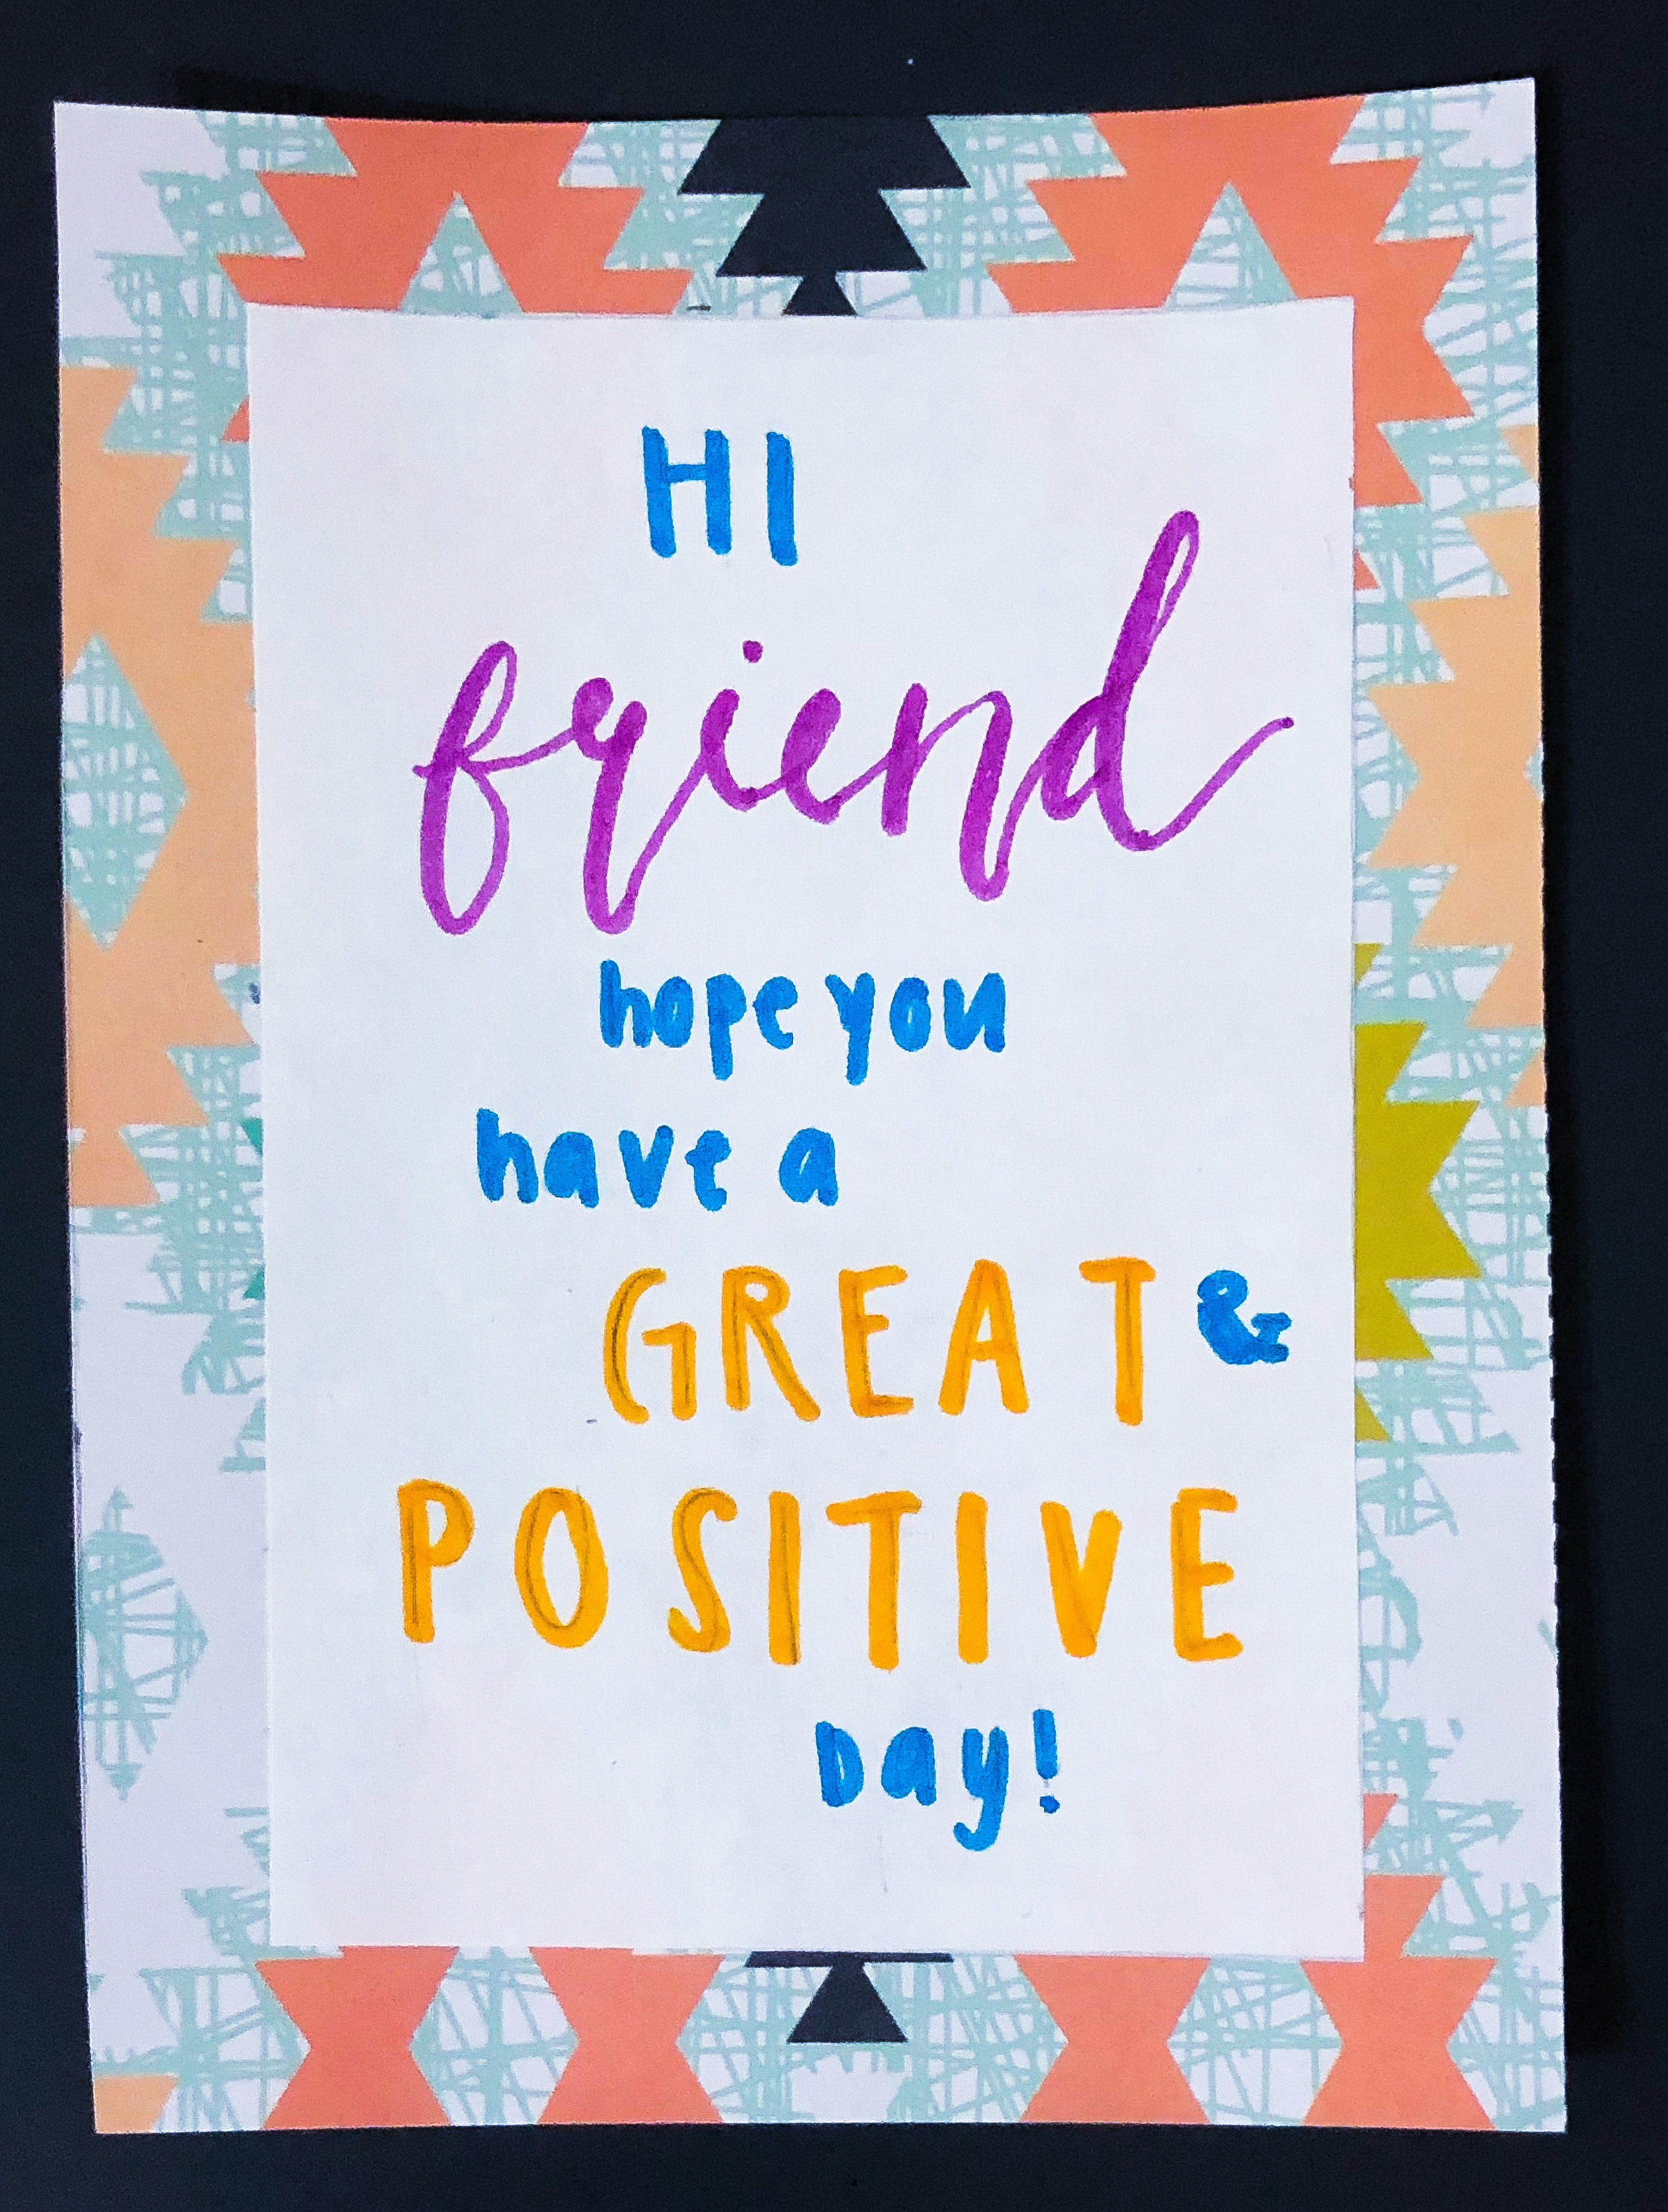 HI
friend
hope you
have a
GREAT &
POSITIVE
Day!